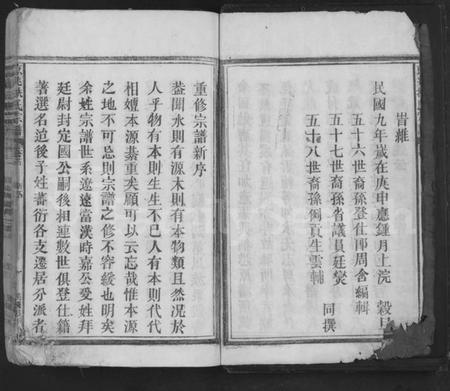 旹維
民國九年歲在庚申應鍾月上浣 穀旦
五十六世裔孫登仕郎周會編輯
五十七世裔孫省議員廷爕
五十八世裔孫例貢生雲輔 同撰
重修宗譜新序
葢聞水則有源木則有本物類且然况於
人乎物有本則生生不已人有本則代代
相嬗本源綦重矣顧可以云忘哉惟本源
之地不可忘則宗譜之修不容緩也明矣
余姓宗譜世系遼遠當漢時嘉公受姓拜
廷尉封定國公嗣後相連數世俱登仕籍
著選名迨後子姓蕃衍各支遷居分派者